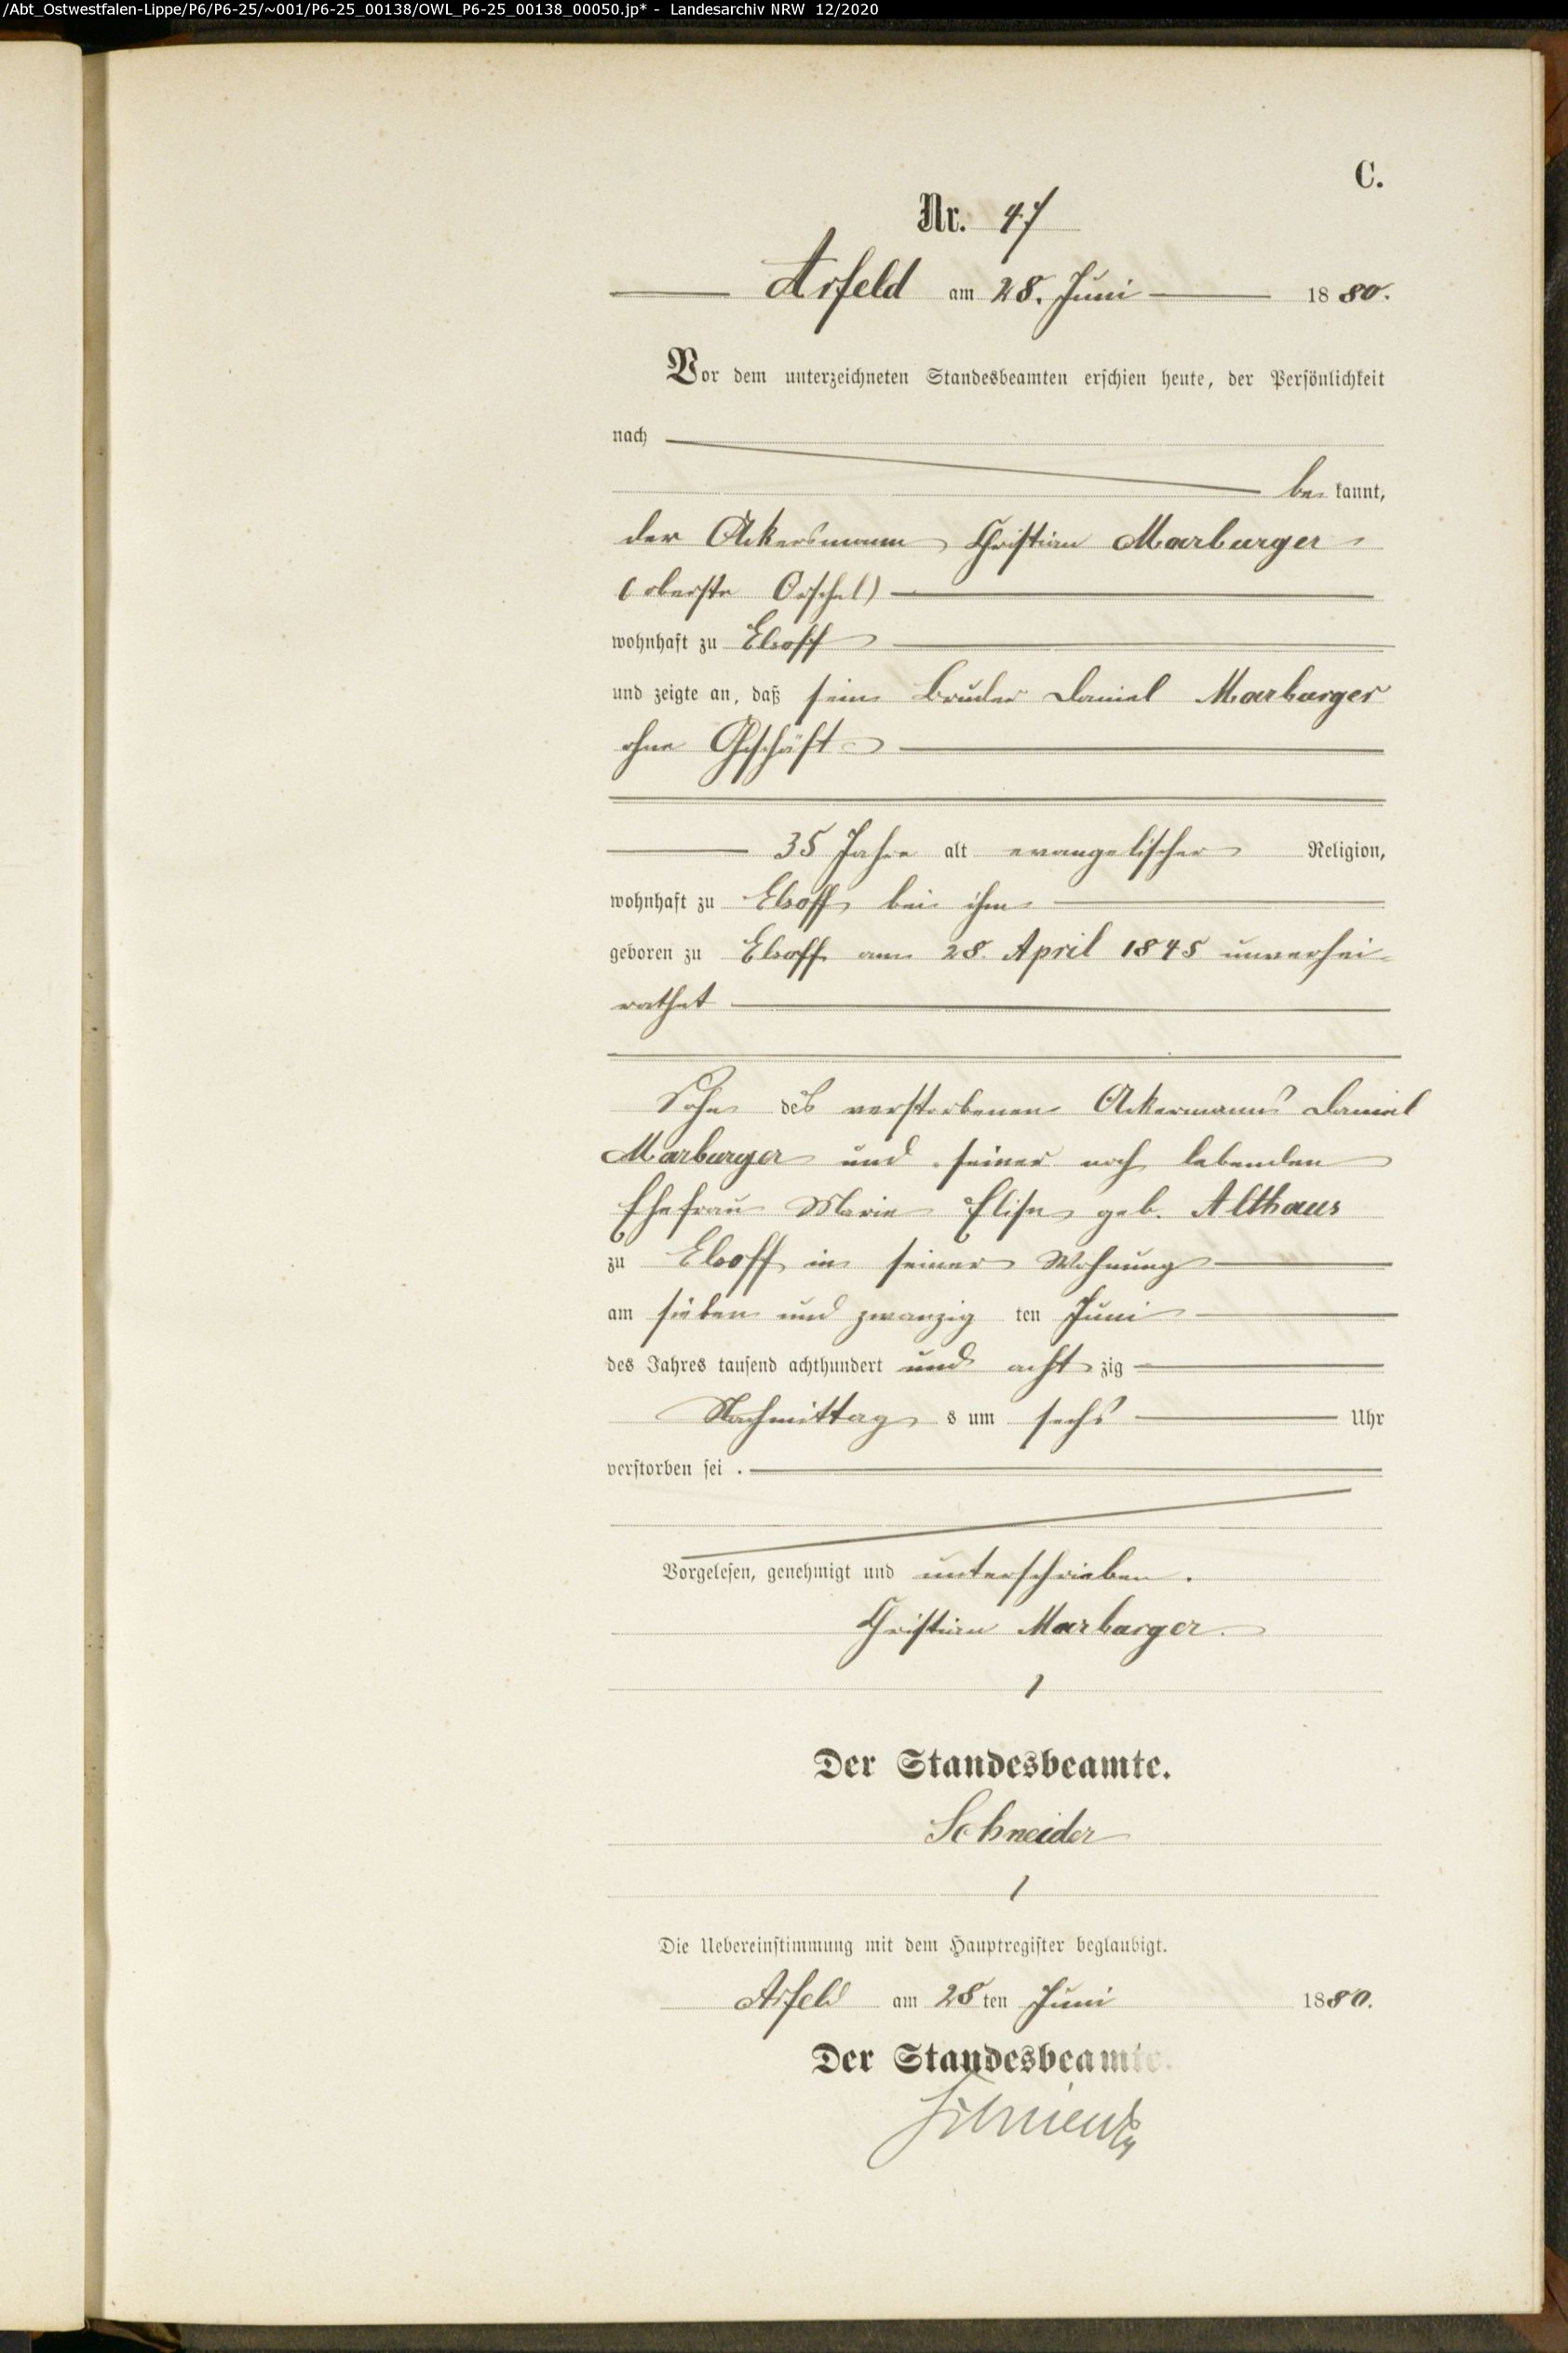 /Abt_Ostwestfalen-Lippe/P6/P6-25/~001/P6-25_00138/OWL_P6-25_00138_00050.jp* - Landesarchiv NRW 12/2020
C.
Nr. 47
Arfeld am 28. Juni 1880.
Vor dem unterzeichneten Standesbeamten erschien heute, der Persönlichkeit
nach
bekannt,
der Ackersmann Christian Marburger
(oberste Orschel)
wohnhaft zu Elsoff
und zeigte an, daß sein Bruder Daniel Marburger
ohne Geschäft
35 Jahre alt evangelischer Religion,
wohnhaft zu Elsoff bei ihm
geboren zu Elsoff am 28. April 1845 unverhei-
rathet
Sohn des verstorbenen Ackermanns Daniel
Marburger und seiner noch lebenden
Ehefrau Marie Elise geb. Althaus
zu Elsoff in seiner Wohnung
am sieben und zwanzig ten Juni
des Jahres tausend achthundert und acht zig
Nachmittag s um sechs Uhr
verstorben sei .
Vorgelesen, genehmigt und unterschrieben.
Christian Marburger.
Der Standesbeamte.
Schneider
Die Uebereinstimmung mit dem Hauptregister beglaubigt.
Arfeld am 28 ten Juni 1880.
Der Standesbeamte.
Schneider